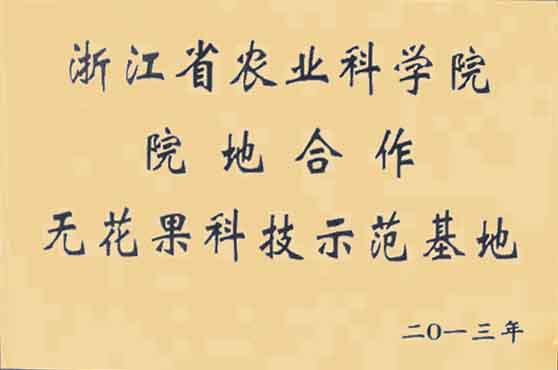 浙江省农业科学院
院地合作
无花果科技示范基地
二O一三年